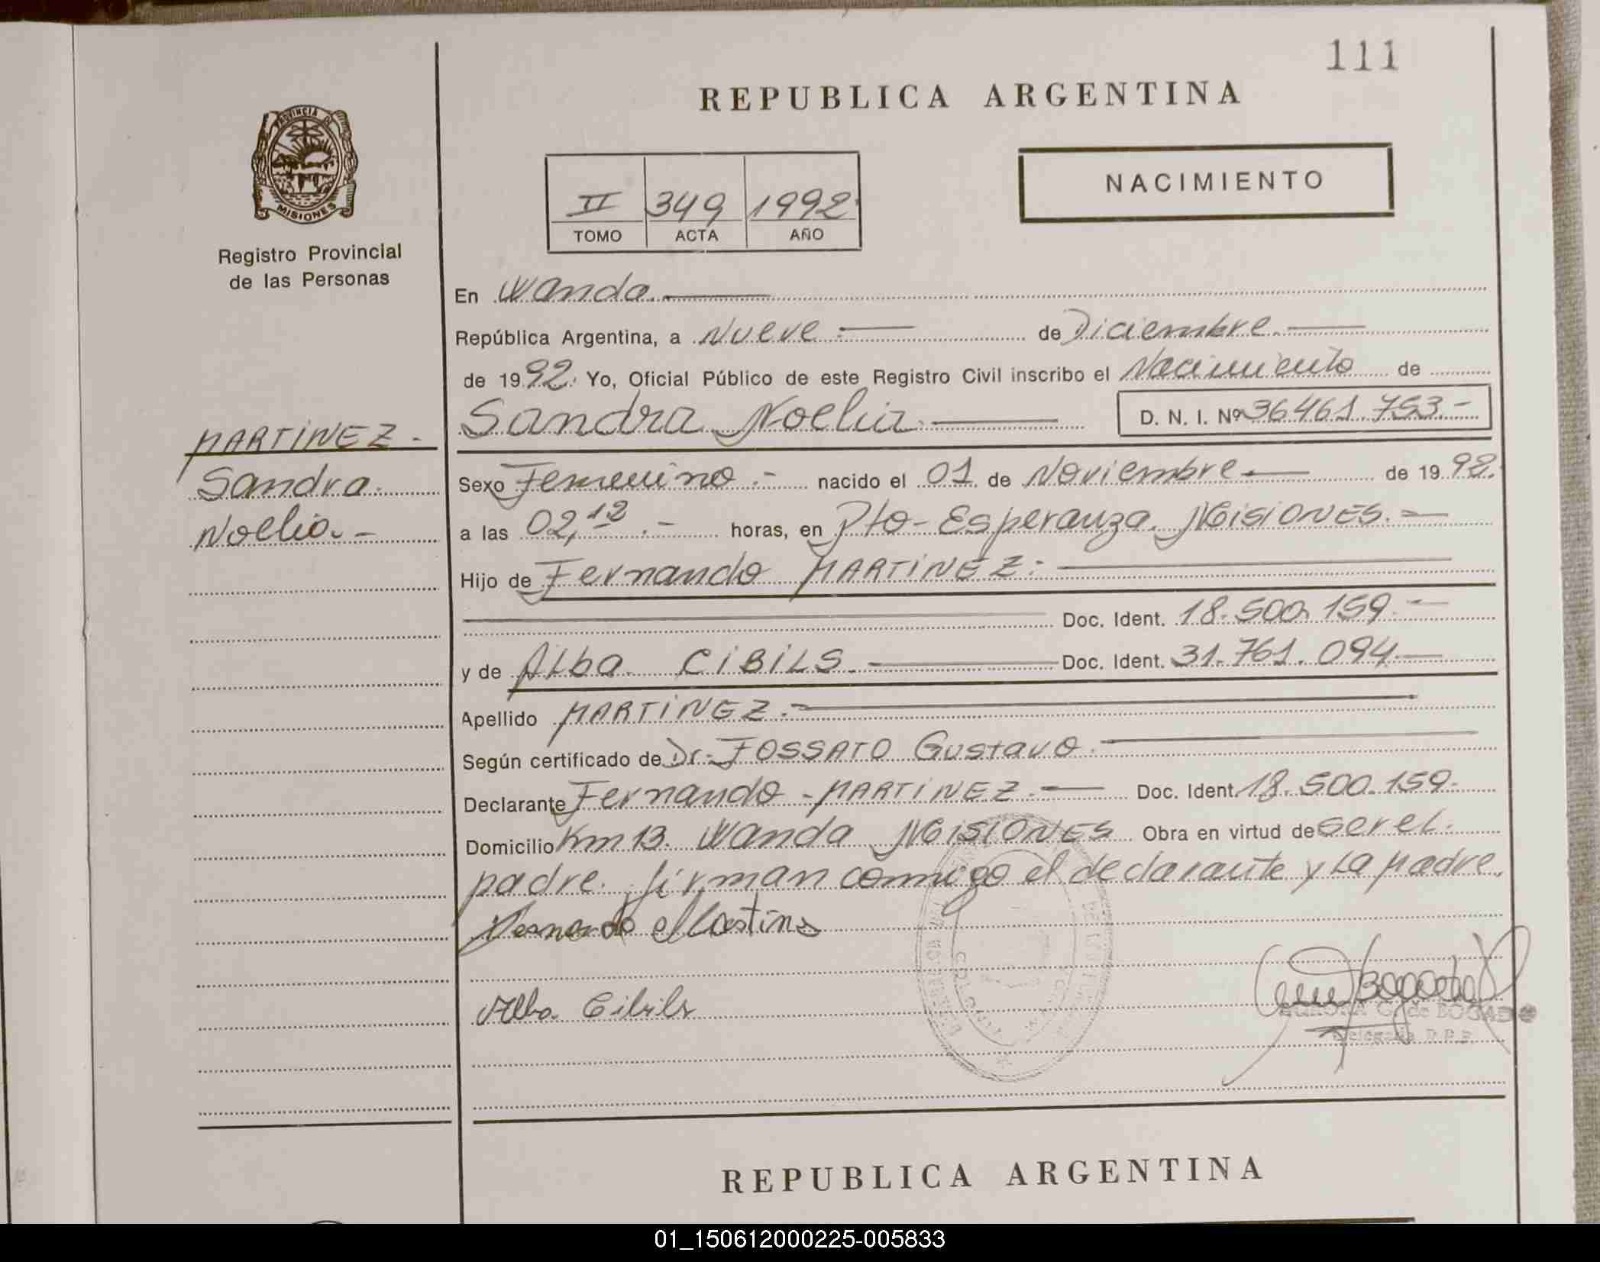 111
REPUBLICA ARGENTINA
PROVINCIA DE
MISIONES
Registro Provincial
de las Personas
II 349 1992
TOMO ACTA AÑO
NACIMIENTO
En Wanda.
República Argentina, a Nueve.- de Diciembre.
de 1992. Yo, Oficial Público de este Registro Civil inscribo el Nacimiento de
Sandra Noelia. D. N. I. Nº 36461.753.-
MARTINEZ.-
Sandra.
Noelia.-
Sexo Femenino.- nacido el 01 de Noviembre de 1992.
a las 02,12.- horas, en Pto- Esperanza. MISIONES.-
Hijo de Fernando MARTINEZ:
Doc. Ident. 18.500.159.-
y de Alba. CIBILS. Doc. Ident. 31.761.094
Apellido MARTINEZ.-
Según certificado de Dr. FOSSATO Gustavo.
Declarante Fernando - MARTINEZ. Doc. Ident. 18.500.159.
Domicilio Km 13. Wanda MISIONES Obra en virtud de ser el.
padre. firman conmigo el declarante y la padre.
Fernando Martines
Alba. Cibils
AURORA G. de BOGADO
Delegada R.P.P.
REPUBLICA ARGENTINA
01_150612000225-005833